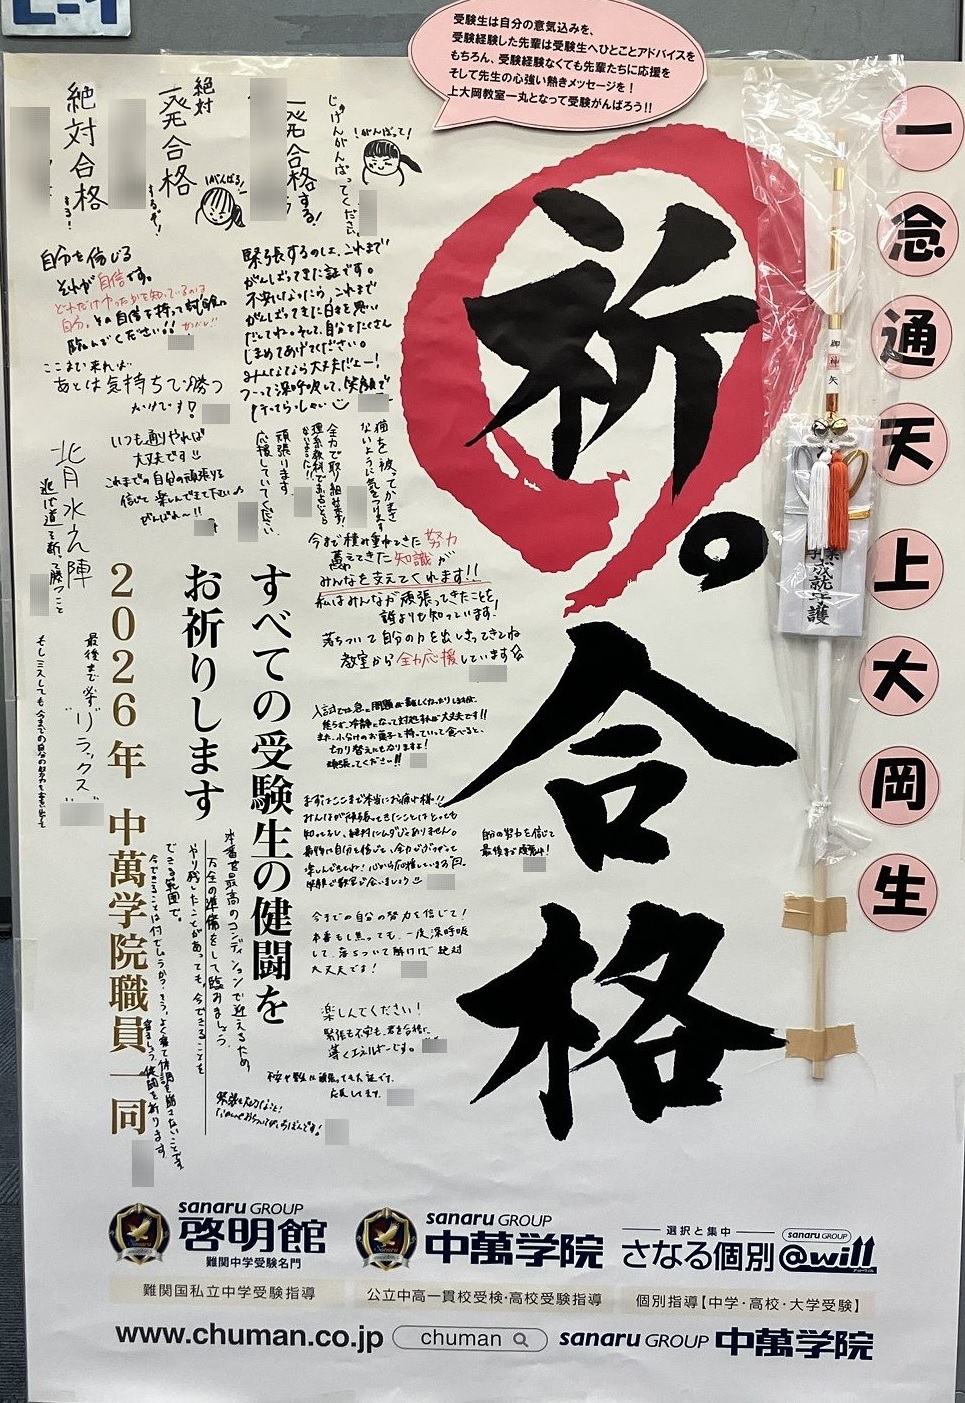 受験生は自分の意気込みを、
受験経験した先輩は受験生へひとことアドバイスを
もちろん、受験経験なくても先輩たちに応援を
そして先生の心強い熱きメッセージを!
上大岡教室一丸となって受験がんばろう!!
一念通天上大岡生
祈。合格
御神矢
成就守護
すべての受験生の健闘を
お祈りします
2026年 中萬学院職員一同
じゅけんがんばってください。
がんばって!
一発合格する!
絶対
一発合格
するぞ!
がんばる!
絶対合格
する!
自分を信じる
それが自信です。
どれだけやったかを知っているのは
自分。その自信を持って試験に
臨んでください!!
ここまで来れば
あとは気持ちで勝つ
だけです!
緊張するのは、これまで
がんばってきた証です。
不安になったら、これまで
がんばってきた日を思い
だしてね。そして、自分をたくさん
ほめてあげてください。
みんななら大丈夫だよー!
フーって深呼吸して、笑顔で
行ってらっしゃい
いつも通りやれば
大丈夫です
これまでの自分の頑張りを
信じて楽しんできて下さい
がんばれ〜!!
背水之陣
逃げ道を断って勝つこと
頑張ります
応援していてください
全力で取り組む
今まで積み重ねてきた努力
蓄えてきた知識が
みんなを支えてくれます!!
私はみんなが頑張ってきたことを
誰よりも知っています!
落ちついて自分の力を出しきってきてね
教室から全力応援しています
最後まで楽しく
"リラックス"
入試では急に問題が難しくなったりしますが、
焦らず、冷静になって対処すれば大丈夫です!!
また、小分けのお菓子を持っていって食べると、
切り替えにもなりますよ!
頑張ってください!!
まずはここまで本当にお疲れ様!!
みんなが頑張ってきたことはとっても
知ってるし、絶対にムダじゃありません。
最後は自分を信じて、全力でぶつかって
楽しんできてね!心から応援しています
笑顔で教室で会いましょう
自分の努力を信じて
最後まで
今までの自分の努力を信じて!
本番もし焦っても、一度深呼吸
して、落ちついて解けば絶対
大丈夫です!
楽しんでください!
緊張も不安も、君を合格に
導くエネルギーです。
不安や緊張は頑張ってきた証です。
応援してます。
本番を最高のコンディションで迎えるため
万全の準備をして臨みましょう。
やり残したことがあっても、今できることを
できる範囲で。
sanaru GROUP
啓明館
難関中学受験名門
難関国私立中学受験指導
sanaru GROUP
中萬学院
公立中高一貫校受検・高校受験指導
選択と集中
さなる個別
sanaru GROUP
@will
個別指導【中学・高校・大学受験】
www.chuman.co.jp
chuman
sanaru GROUP 中萬学院